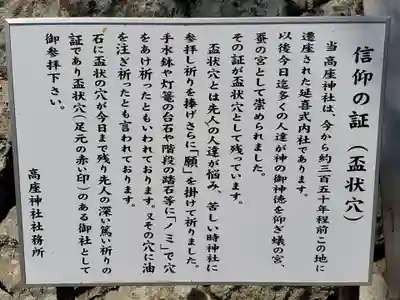 信仰の証（盃状穴）
当高座神社は、今から約三百五十年程前この地に
遷座された延喜式内社であります。
以後今日迄多くの人達が神の御神徳を仰ぎ蟻の宮、
蚕の宮として崇められました。
その証が盃状穴として残っています。
盃状穴とは先人の人達が悩み、苦しい時神社に
参拝し祈りを捧げさらに「願」を掛けて祈りました。
手水鉢や灯篭の台石や階段の踏石等に「ノミ」で穴
をあけ祈ったともいわれております。又その穴に油
を注ぎ祈ったとも言われております。
石に盃状の穴が今日まで残り先人の深い篤い祈りの
証であり盃状穴（足元の赤い印）のある御社として
御参拝下さい。
高座神社社務所